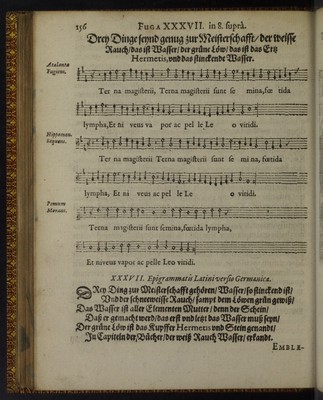 156 FUGA XXXVII. in 8. suprà.
Drey Dinge seynd genug zur Meisterschafft / der weisse
Rauch / das ist Wasser / der grüne Löw / das ist das Ertz
Hermetis, und das stinckende Wasser.
Atalanta
fugiens.
Ter na magisterii, Terna magisterii sunt se mina, fœ tida
lympha, Et ni veus va por ac pel le Le o viridi.
Hippomen.
sequens.
Ter na magisterii Terna magisterii sunt se mi na, fœtida
lympha, Et ni veus vapor ac pel le Le o viridi.
Pomum
Morans.
Terna magisterii sunt semina, fœtida lympha,
Et niveus vapor ac pelle Leo viridi.
XXXVII. Epigrammatis Latini versio Germanica.
DRey Ding zur Meisterschafft gehören / Wasser / so stinckend ist /
Und der schneeweisse Rauch / sampt dem Löwen grün gewiß /
Das Wasser ist aller Elementen Mutter / denn der Schein /
Daß er gemacht werd / das erst und letzt das Wasser muß seyn /
Der grüne Löw ist das Kupffer Hermetis und Stein genandt /
In Capiteln der / Bücher / der weiß Rauch Wasser / erkandt.
EMBLE-